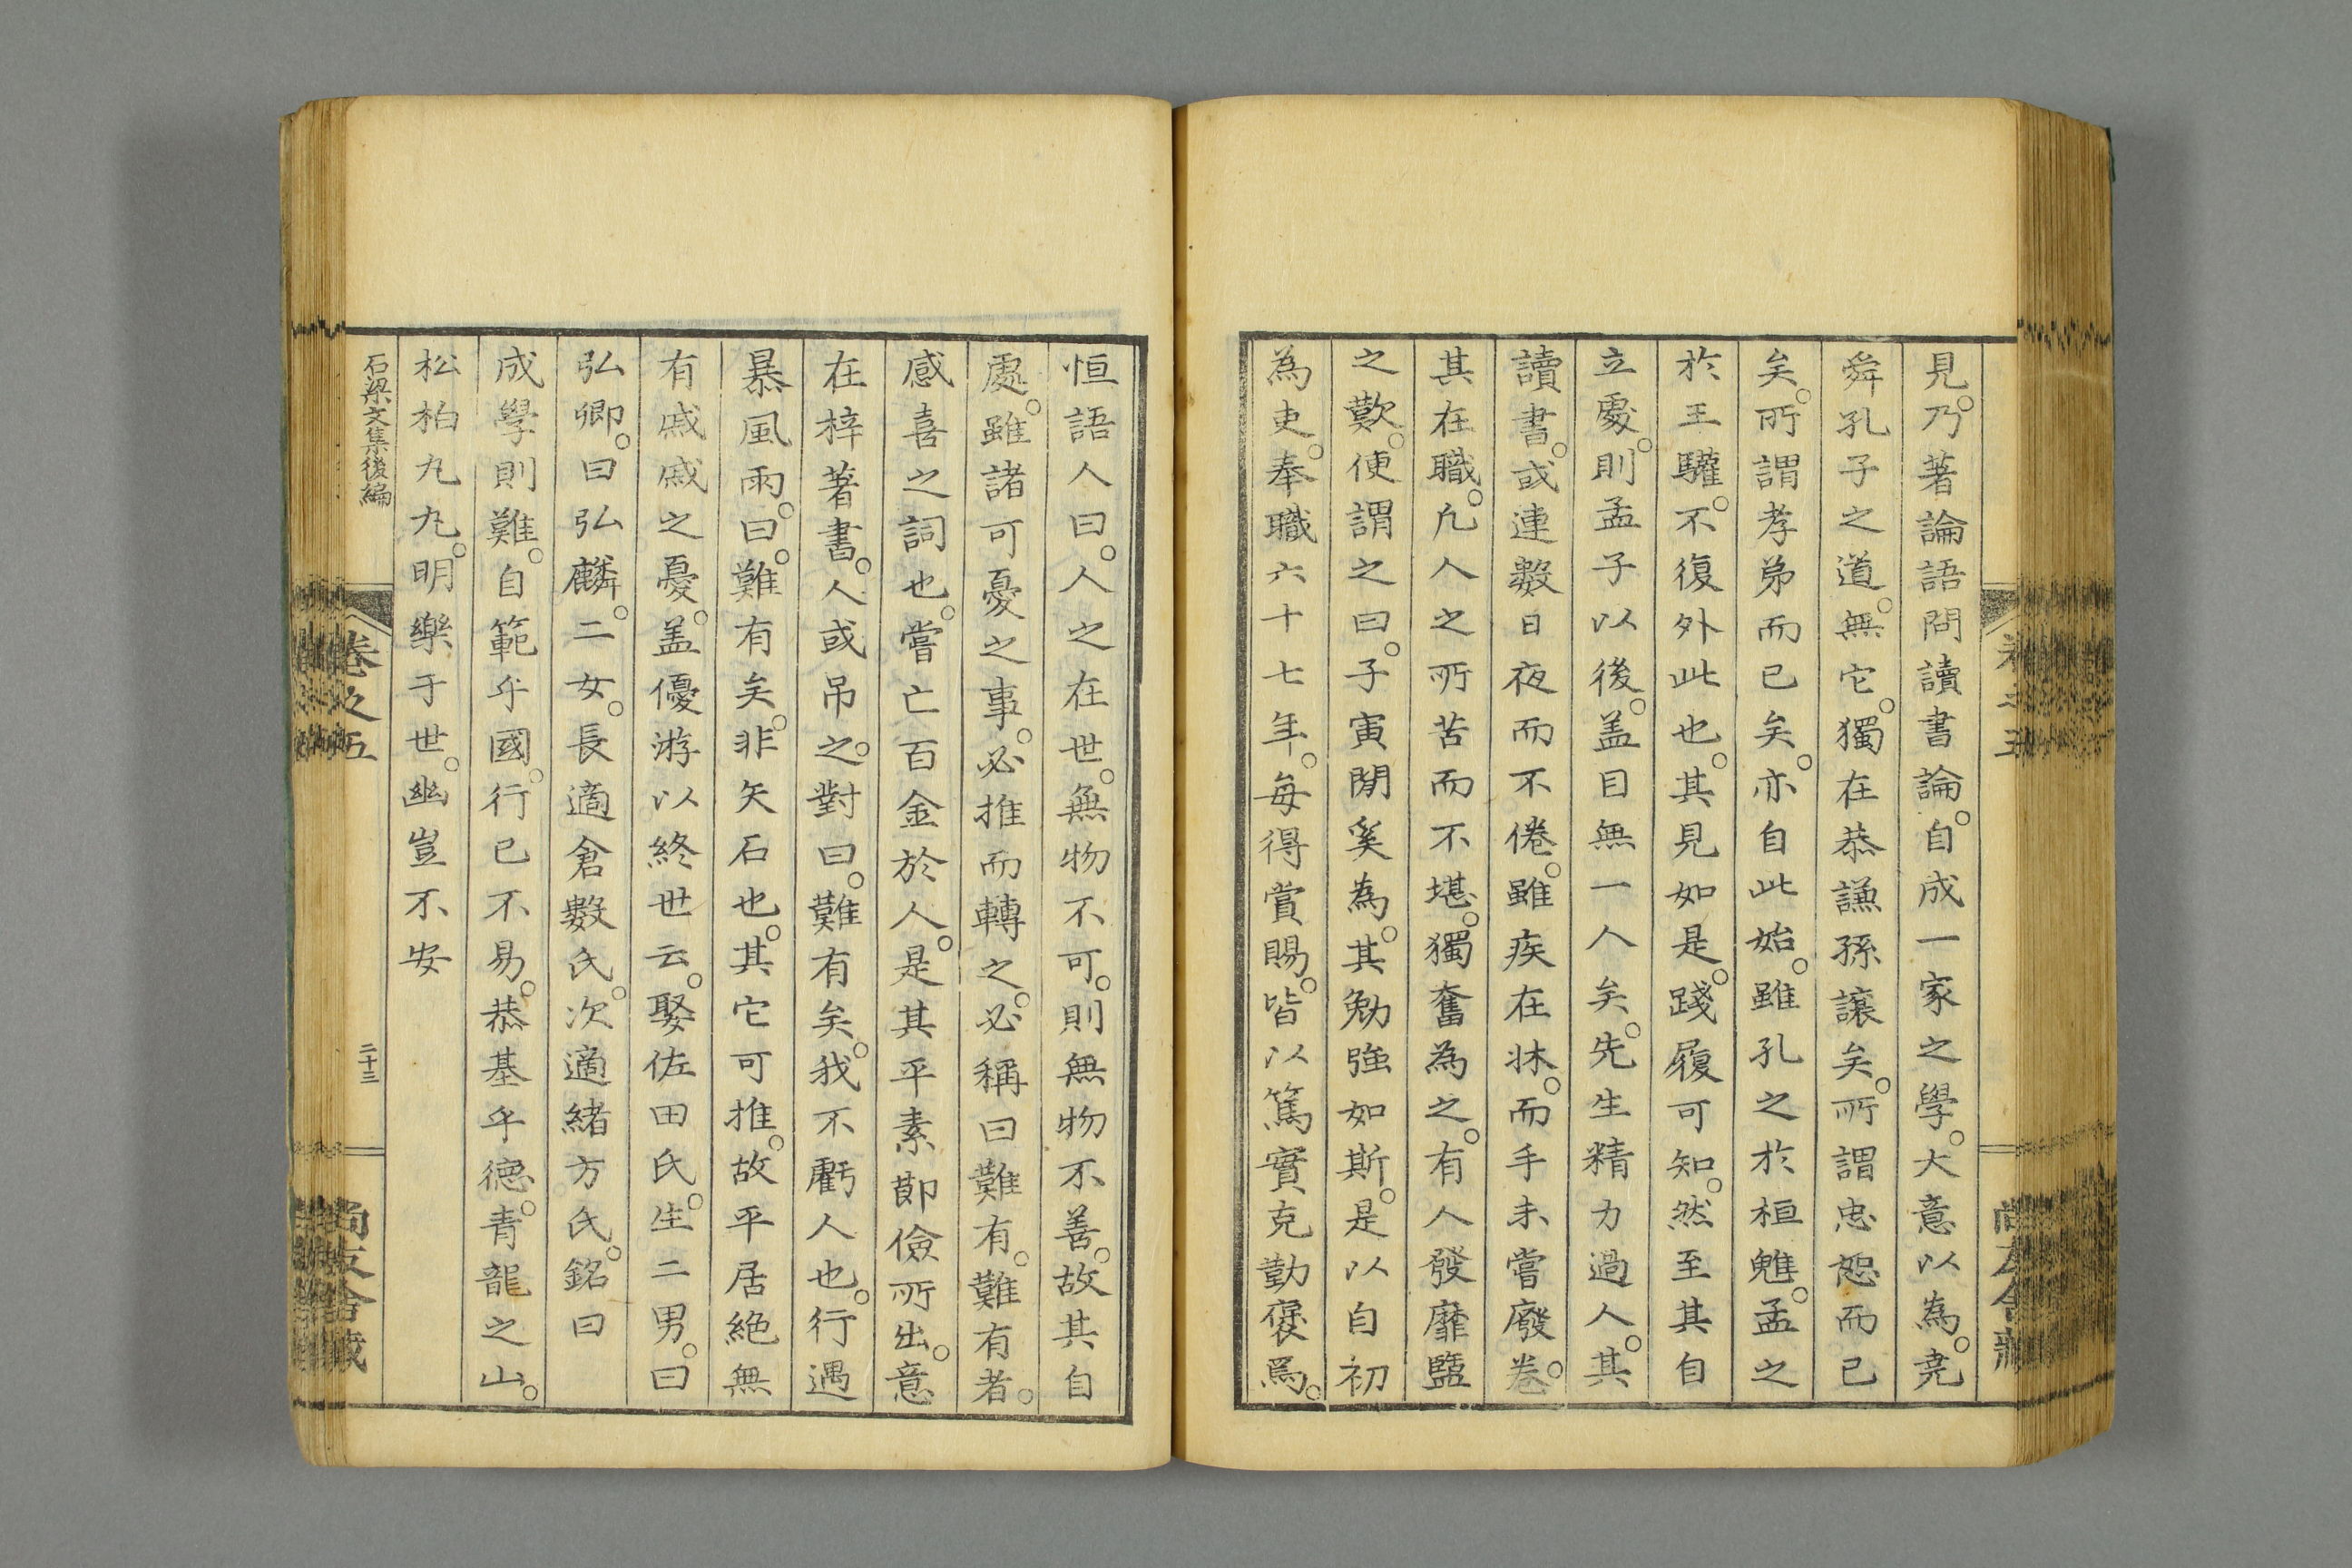 見。乃著論語問讀書論。自成一家之學。大意以為。堯
舜孔子之道。無它。獨在恭謙孫讓矣。所謂忠恕而已
矣。所謂孝弟而已矣。亦自此始。雖孔之於桓魋。孟之
於王驩。不復外此也。其見如是。踐履可知。然至其自
立處。則孟子以後。盖目無一人矣。先生精力過人。其
讀書。或連數日夜而不倦。雖疾在牀。而手未嘗廢卷。
其在職。凡人之所苦而不堪。獨奮為之。有人發靡盬
之歎。便謂之曰。子寅閒奚為。其勉強如斯。是以自初
為吏。奉職六十七年。每得賞賜。皆以篤實克勤褒焉。
恒語人曰。人之在世。無物不可。則無物不善。故其自
處。雖諸可憂之事。必推而轉之。必稱曰難有。難有者。
感喜之詞也。嘗亡百金於人。是其平素節儉所出。意
在梓著書。人或吊之。對曰。難有矣。我不虧人也。行遇
暴風雨。曰。難有矣。非矢石也。其它可推。故平居絶無
有戚戚之憂。盖優游以終世云。娶佐田氏。生二男。曰
弘卿。曰弘麟。二女。長適倉數氏。次適緒方氏。銘曰
成學則難。自範乎國。行已不易。恭基乎德。青龍之山。
松柏丸丸。明樂于世。幽豈不安
石梁文集後編
卷之五
二十三
尚友舍藏